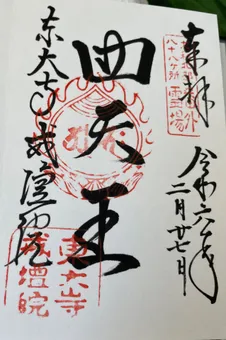 奉拝
八十八ヶ所
霊場
四天王
東大寺戒壇院
令和六年
二月廿七日
東大寺
戒壇院